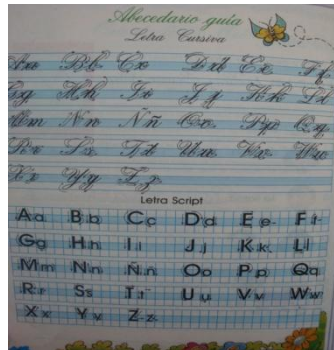 Abecedario guía
Letra Cursiva
Aa Bb Cc Dd Ee Ff
Gg Hh Ii Jj Kk Ll
Mm Nn Ññ Oo Pp Qq
Rr Ss Tt Uu Vv Ww
Xx Yy Zz
Letra Script
Aa Bb Cc Dd Ee Ff
Gg Hh Ii Jj Kk Ll
Mm Nn Ññ Oo Pp Qq
Rr Ss Tt Uu Vv Ww
Xx Yy Zz